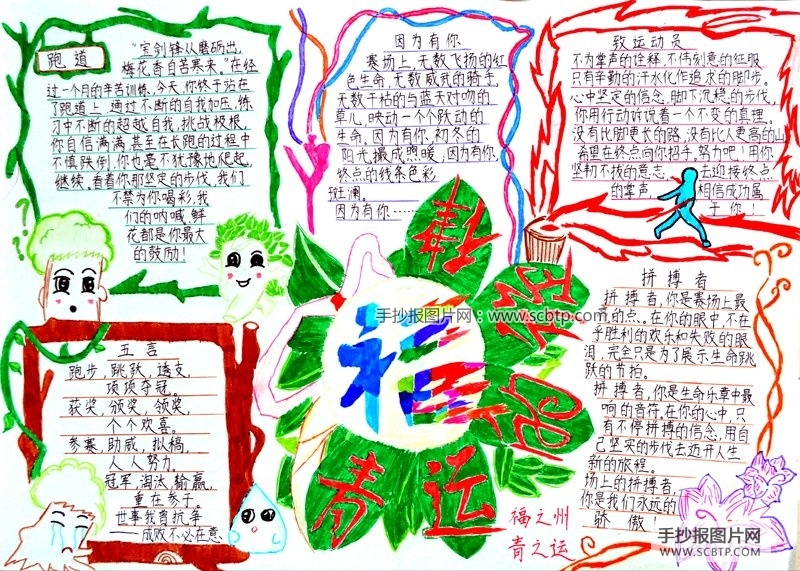 跑道
“宝剑锋从磨砺出，
梅花香自苦寒来。”在经
过一个月的辛苦训练，今天，你终于站在
了跑道上，通过不断的自我加压，练
习中不断的超越自我，挑战极根，
你自信满满，甚至在长跑的过程中
不慎跌倒，你也毫不犹豫地爬起，
继续，看着你那坚定的步伐，我们
不禁为你喝彩，我
们的呐喊，鲜
花都是你最大
的鼓励！
因为有你
赛场上，无数飞扬的红
色生命，无数威武的骑手，
无数干枯的与蓝天对吻的
草儿，映动一个个跃动的
生命。因为有你，初冬的
阳光撮成照暖，因为有你，
终点的线条色彩
斑斓。
因为有你……
致运动员
不为掌声的诠释，不伟刻意的征服
只有辛勤的汗水化作追求的脚步。
心中坚定的信念，脚下沉稳的步伐，
你用行动诉说着一个不变的真理。
没有比脚更长的路，没有比人更高的山
希望在终点向你招手，努力吧！用你
坚韧不拔的意志，去迎接终点
的掌声，相信成功属
于你！
五言
跑步，跳跃，接支，
项项夺冠。
获奖，颁奖，领奖，
个个欢喜。
参赛，助威，拟稿，
人人努力。
冠军，淘汰，输赢，
重在参于。
世事我肯抗争
——成败不必在意
福
青运
手抄报图片网：www.scbtp.com
福之州
青之运
拼搏者
拼搏者，你是赛场上最
的点。在你的眼中，不在
乎胜利的欢乐和失败的眼
泪，完全只是为了展示生命跳
跃的节拍。
拼搏者，你是生命乐章中最
响的音符，在你的心中，只
有不停拼搏的信念，用自
己坚实的步伐去迈开人生
新的旅程。
场上的拼搏者，
你是我们永远的
骄傲！
手抄报图片网
WWW.SCBTP.COM